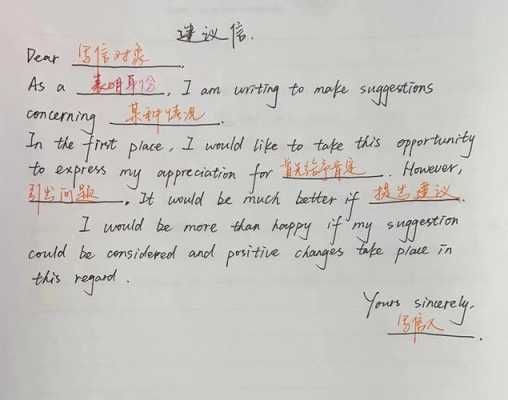 建议信.
Dear 写信对象.
As a 表明身份, I am writing to make suggestions
concerning 某种情况.
In the first place, I would like to take this opportunity
to express my appreciation for 首先给予肯定. However,
引出问题. It would be much better if 提出建议.
I would be more than happy if my suggestion
could be considered and positive changes take place in
this regard.
Yours sincerely,
写信人.